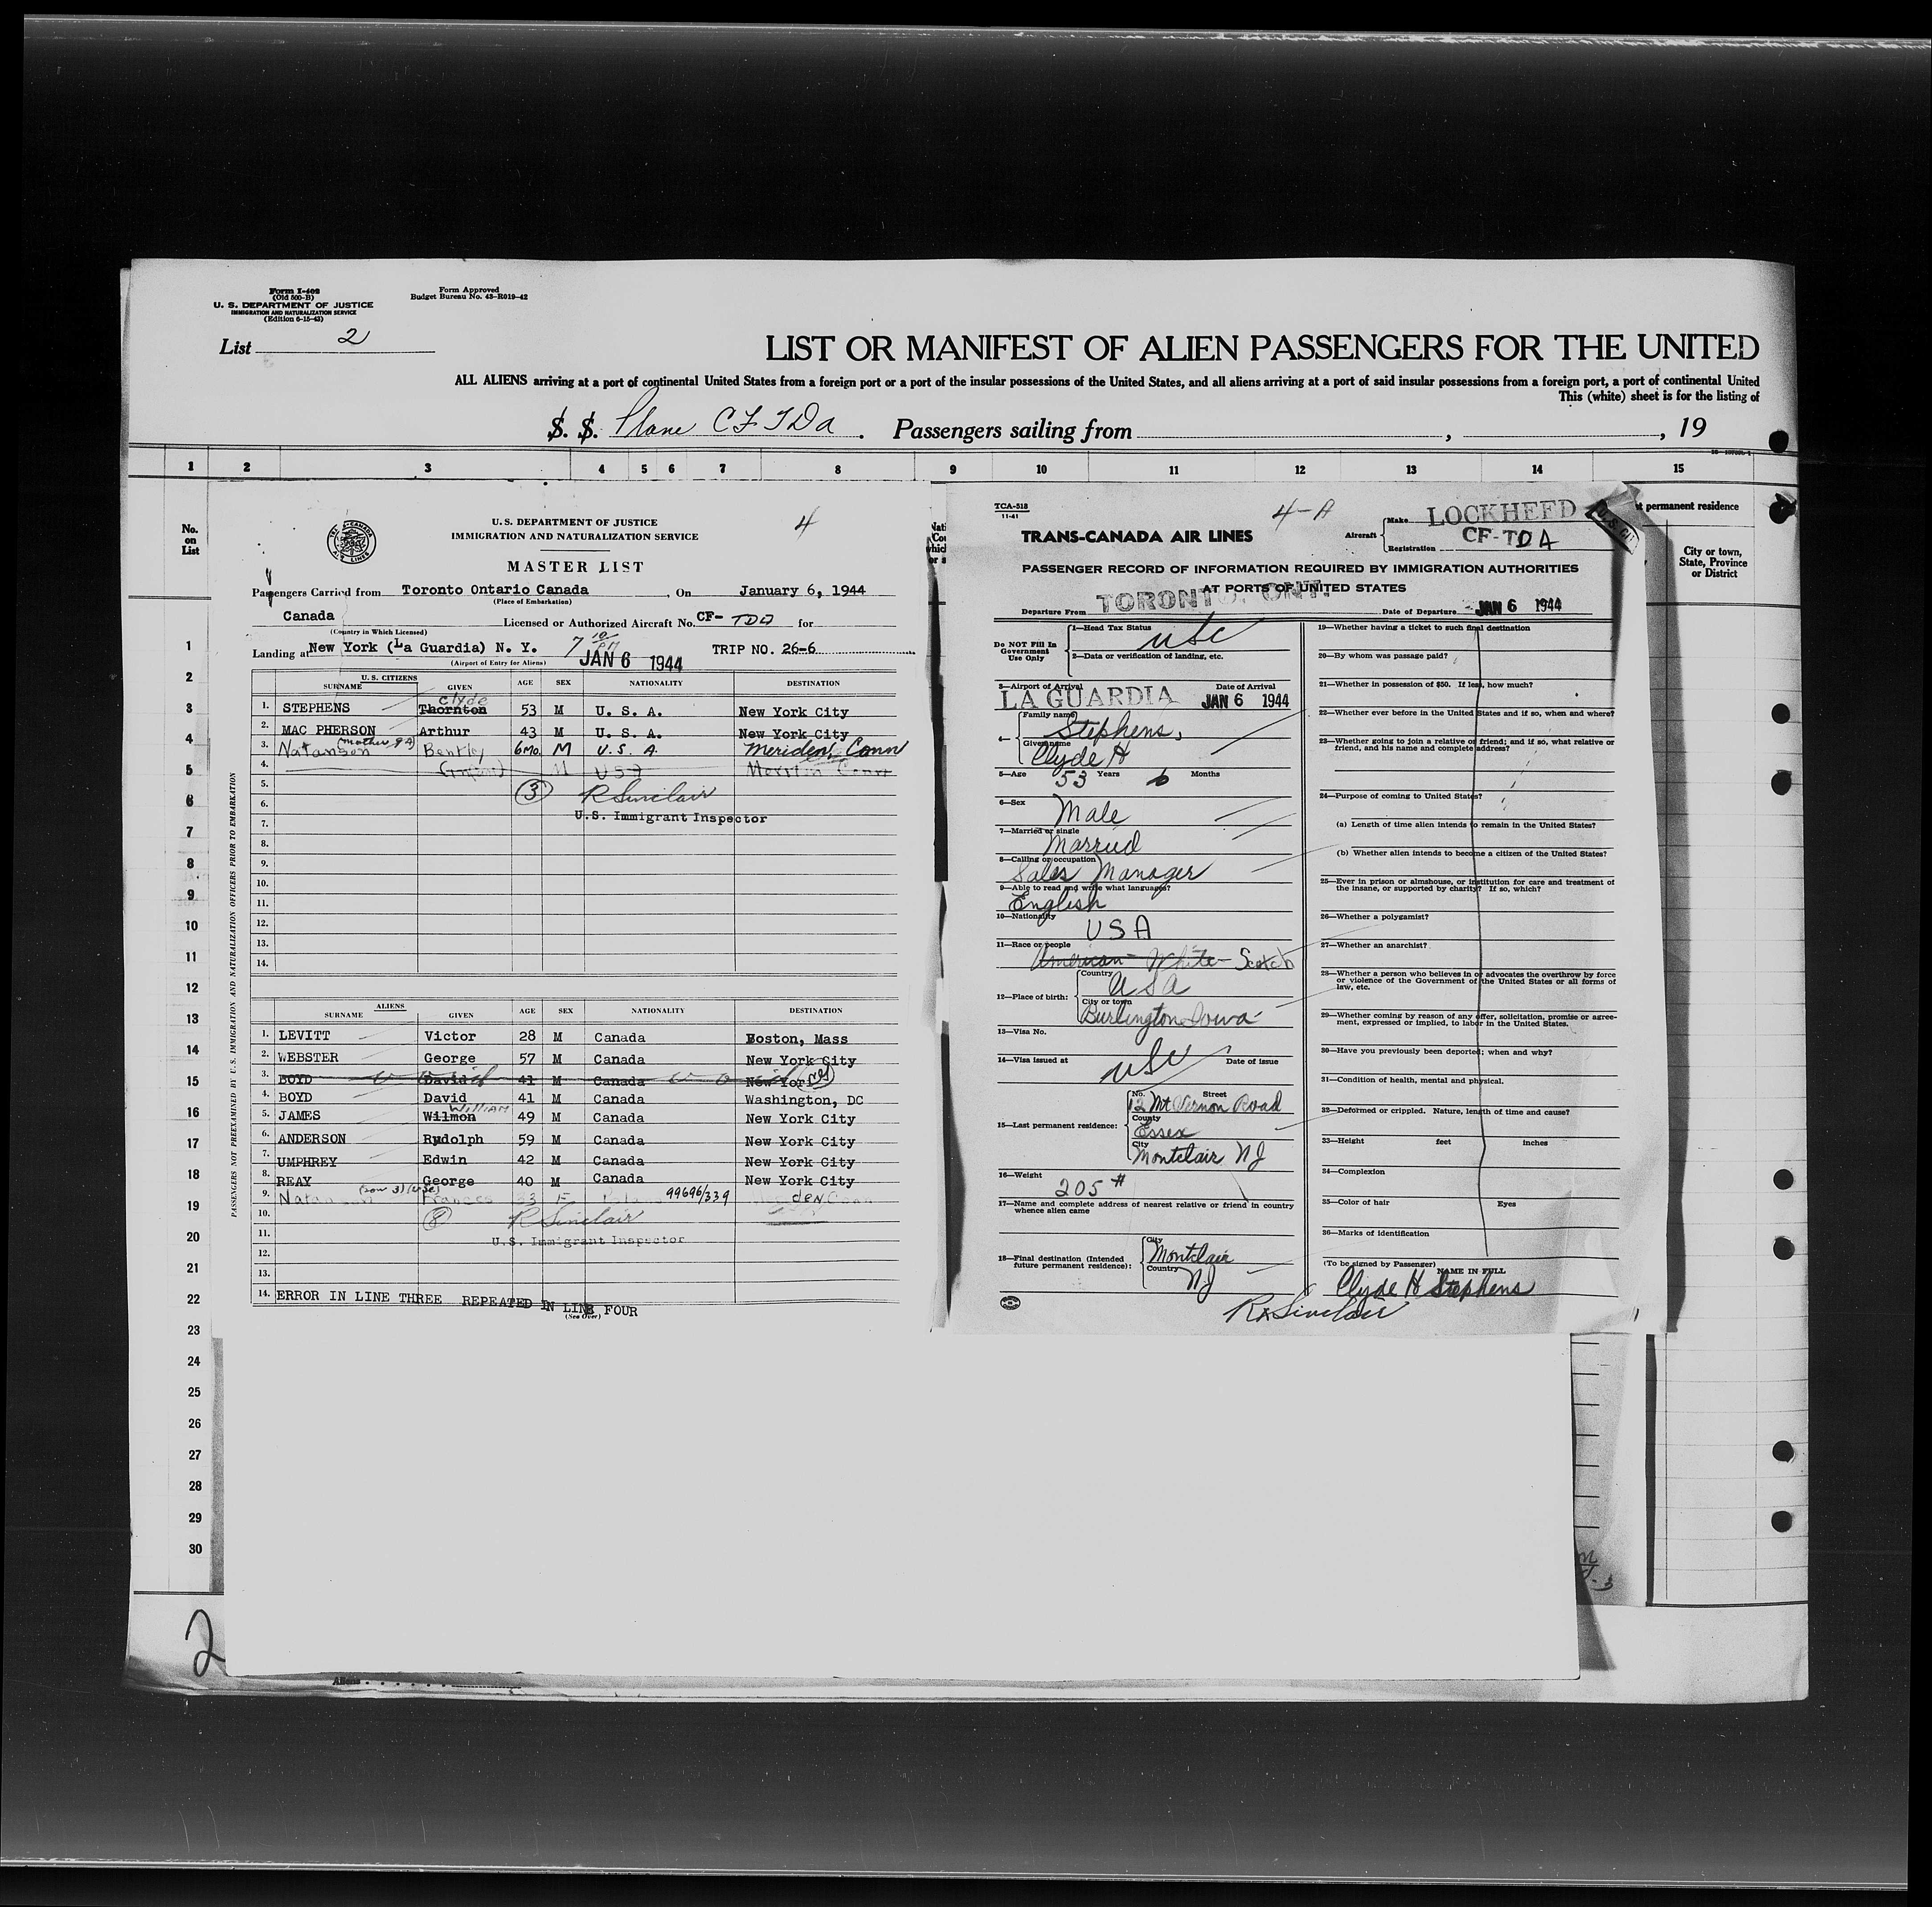 Form I-408
(Old 500-B)
U. S. DEPARTMENT OF JUSTICE
IMMIGRATION AND NATURALIZATION SERVICE
(Edition 6-15-43)
Form Approved
Budget Bureau No. 43-R019-42
List 2
LIST OR MANIFEST OF ALIEN PASSENGERS FOR THE UNITED
ALL ALIENS arriving at a port of continental United States from a foreign port or a port of the insular possessions of the United States, and all aliens arriving at a port of said insular possessions from a foreign port, a port of continental United
This (white) sheet is for the listing of
S. S. Plane CF TDA. Passengers sailing from , , 19
1 2 3 4 5 6 7 8 9 10 11 12 13 14 15
No. on List
t permanent residence
City or town, State, Province or District
1
2
3
4
5
6
7
8
9
10
11
12
13
14
15
16
17
18
19
20
21
22
23
24
25
26
27
28
29
30
2
Aliens
PASSENGERS NOT PREEXAMINED BY U. S. IMMIGRATION AND NATURALIZATION OFFICERS PRIOR TO EMBARKATION
U. S. DEPARTMENT OF JUSTICE
IMMIGRATION AND NATURALIZATION SERVICE
4
MASTER LIST
Passengers Carried from Toronto Ontario Canada, On January 6, 1944
(Place of Embarkation)
Canada Licensed or Authorized Aircraft No. CF- TDA for
(Country in Which Licensed)
Landing at New York (La Guardia) N. Y. 7 10 PM JAN 6 1944 TRIP NO. 26-6
(Airport of Entry for Aliens)
U. S. CITIZENS
SURNAME GIVEN AGE SEX NATIONALITY DESTINATION
Clyde
1. STEPHENS Thornton 53 M U. S. A. New York City
2. MAC PHERSON Arthur 43 M U. S. A. New York City
3. Natanson (mother 9A) Bentley 6mo. M U. S. A. Meriden, Conn
4. (Infant) M USA Conn
5. (3) R Sinclair
6.
U.S. Immigrant Inspector
7.
8.
9.
10.
11.
12.
13.
14.
ALIENS
SURNAME GIVEN AGE SEX NATIONALITY DESTINATION
1. LEVITT Victor 28 M Canada Boston, Mass
2. WEBSTER George 57 M Canada New York City
3. BOYD David 41 M Canada New York
4. BOYD David 41 M Canada Washington, DC
William
5. JAMES Wilmon 49 M Canada New York City
6. ANDERSON Rudolph 59 M Canada New York City
7. UMPHREY Edwin 42 M Canada New York City
8. REAY George 40 M Canada New York City
9. Natanson (son 3) (USC) Frances 33 F 99696/339 Conn
10. (8) R Sinclair
11. U.S. Immigrant Inspector
12.
13.
14. ERROR IN LINE THREE REPEATED IN LINE FOUR
(See Over)
TCA-518
11-41
4-A
TRANS-CANADA AIR LINES
Aircraft Make LOCKHEED
Registration CF-TDA
PASSENGER RECORD OF INFORMATION REQUIRED BY IMMIGRATION AUTHORITIES
AT PORTS OF UNITED STATES
Departure From TORONTO, ONT. Date of Departure JAN 6 1944
Do NOT Fill In Government Use Only
1—Head Tax Status USC
2—Data or verification of landing, etc.
3—Airport of Arrival LA GUARDIA Date of Arrival JAN 6 1944
4— Family name Stephens,
Given name Clyde H
5—Age 53 Years 6 Months
6—Sex Male
7—Married or single Married
8—Calling or occupation Sales Manager
9—Able to read and write what languages? English
10—Nationality USA
11—Race or people American - White - Scotch
12—Place of birth: Country USA
City or town Burlington Iowa
13—Visa No.
14—Visa issued at USC Date of issue
15—Last permanent residence: No. Street 12 Mt Vernon Road
County Essex
City Montclair NJ
16—Weight 205 #
17—Name and complete address of nearest relative or friend in country whence alien came
18—Final destination (Intended future permanent residence): City Montclair
Country NJ
19—Whether having a ticket to such final destination
20—By whom was passage paid?
21—Whether in possession of $50. If less, how much?
22—Whether ever before in the United States and if so, when and where?
23—Whether going to join a relative or friend; and if so, what relative or friend, and his name and complete address?
24—Purpose of coming to United States?
(a) Length of time alien intends to remain in the United States?
(b) Whether alien intends to become a citizen of the United States?
25—Ever in prison or almshouse, or institution for care and treatment of the insane, or supported by charity? If so, which?
26—Whether a polygamist?
27—Whether an anarchist?
28—Whether a person who believes in or advocates the overthrow by force or violence of the Government of the United States or all forms of law, etc.
29—Whether coming by reason of any offer, solicitation, promise or agreement, expressed or implied, to labor in the United States.
30—Have you previously been deported; when and why?
31—Condition of health, mental and physical.
32—Deformed or crippled. Nature, length of time and cause?
33—Height feet inches
34—Complexion
35—Color of hair Eyes
36—Marks of identification
(To be signed by Passenger)
NAME IN FULL
Clyde H Stephens
R Sinclair